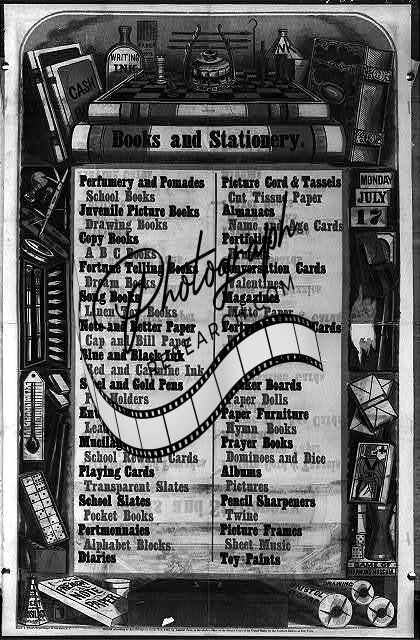 WRITING
INK
CASH
Books and Stationery.
MONDAY
JULY
17
Perfumery and Pomades
School Books
Juvenile Picture Books
Drawing Books
Copy Books
A B C Books
Fortune Telling Books
Dream Books
Song Books
Linen Books
Note and Letter Paper
Cap and Bill Paper
Blue and Black Ink
Red and Carmine Ink
Steel and Gold Pens
Holders
Mucilage
School Reward Cards
Playing Cards
Transparent Slates
School Slates
Pocket Books
Portmonnaies
Alphabet Blocks
Diaries
Picture Cord & Tassels
Cut Tissue Paper
Almanacs
Cards
Portfolios
Conversation Cards
Valentines
Magazines
Music Paper
Cards
Boards
Paper Dolls
Paper Furniture
Hymn Books
Prayer Books
Dominoes and Dice
Albums
Pictures
Pencil Sharpeners
Twine
Picture Frames
Sheet Music
Toy Paints
Photograph
NOTE
PAPER
GAME OF
DRAWING